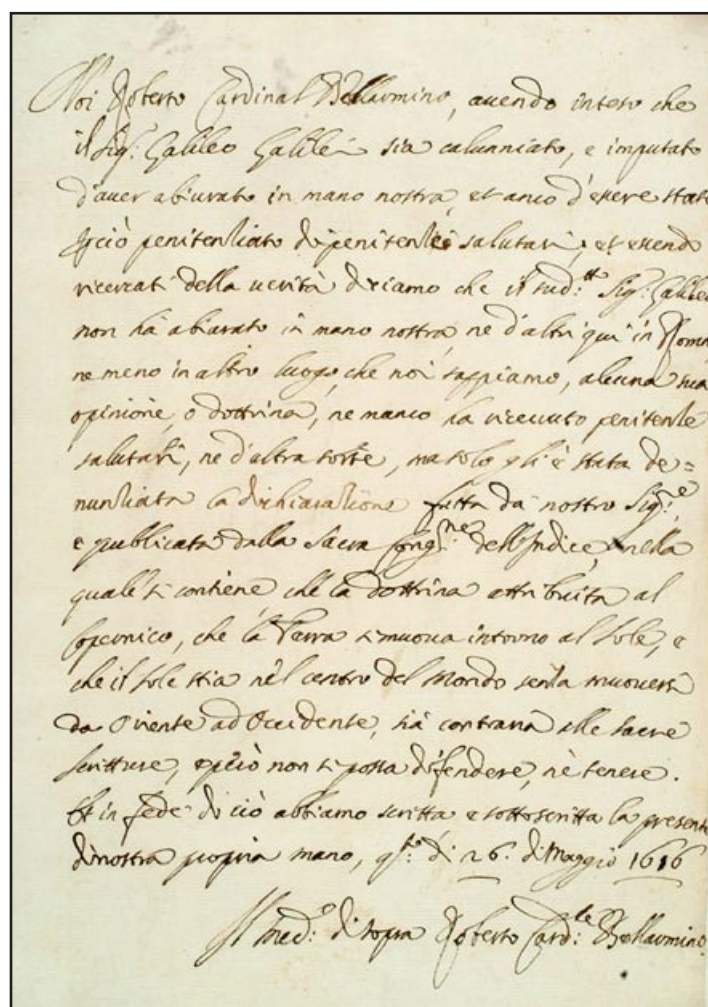 Noi Roberto Cardinal Bellarmino, avendo inteso che
il Sig.r Galileo Galilei sia calunniato, e imputato
d'aver abiurato in mano nostra, et anco d'essere stato
perciò penitenziato di penitenzie salutari, et essendo
ricercati della verità diciamo che il sud.tto Sig.r Galileo
non hà abiurato in mano nostra, ne d'altri quì in Roma
ne meno in altro luogo, che noi sappiamo, alcuna sua
opinione, o dottrina, ne manco ha ricevuto penitenzie
salutari, ne d'altra sorte, ma solo gli è stata de=
nunziata la dichiarazione fatta da nostro Sig.re
e publicata dalla Sacra Cong.ne dell'Indice, nella
quale si contiene che la dottrina attribuita al
Copernico, che la Terra si muova intorno al Sole, e
che il Sole stia nel centro del Mondo senza muoversi
da Oriente ad Occidente, sia contraria alle sacre
scritture, e perciò non si possa difendere, nè tenere.
Et in fede di ciò abbiamo scritta e sottoscritta la presente
di nostra propria mano, q.to dì 26. di Maggio 1616
Il med.o di sopra Roberto Card.le Bellarmino.